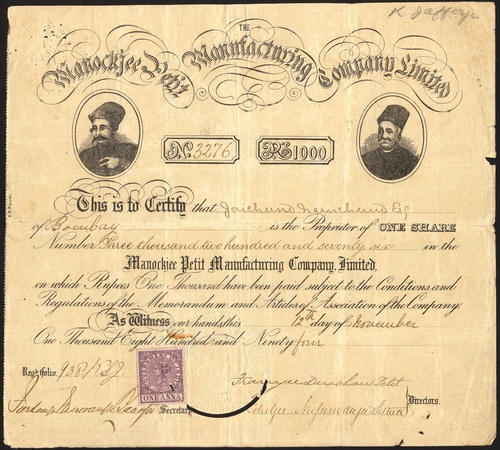 K Jafferji
THE
Manockjee Petit Manufacturing Company Limited
No. 3276 Rs 1000
This is to Certify that Jaichund Nemchund Esq
of Bombay is the Proprietor of ONE SHARE
Number Three thousand two hundred and seventy six in the
Manockjee Petit Manufacturing Company, Limited,
on which Rupees One Thousand have been paid subject to the Conditions and
Regulations of the Memorandum and Articles of Association of the Company.
As Witness our hands this 12th day of November
One Thousand Eight Hundred and Ninety four
Regd. folio,
ONE ANNA
Framjee Dinshaw Petit
Directors.
Secretary